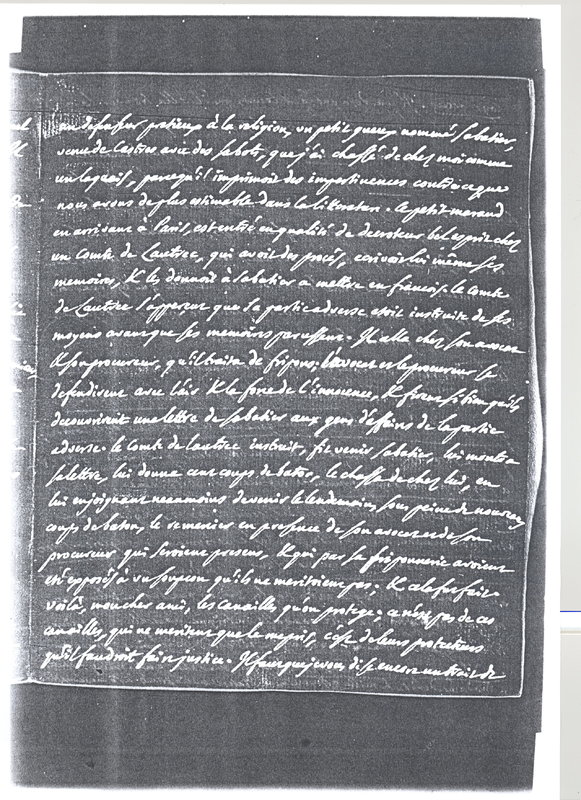 un defenseur pretieux à la religion, un petit gueux nommé Sabatier,
venu de Castres avec des sabots, que j'ai chassé de chez moi comme
un laquais, parcequ'il imprimoit des impertinences contre ce que
nous avons de plus estimable dans la litterature. Ce petit maraud
en arrivant à Paris, est entré en qualité de decroteur bel esprit chez
un Comte de Lautrec, qui avoit des procès, ecrivoit lui même ses
memoires, & les donnoit à Sabatier a mettre en françois. le Comte
de Lautrec s'apperçut que sa partie adverse etoit instruite de ses
moyens avant que ses memoires parussent. Il alla chez son avocat
& son procureur, qu'il traita de fripons; l'avocat et le procureur se
defendirent avec l'air & la force de l'innocence, & firent si bien qu'ils
decouvrirent une lettre de Sabatier aux gens d'affaires de la partie
adverse. le Comte de Lautrec instruit, fit venir Sabatier, lui montra
sa lettre, lui donna cent coups de baton, le chassa de chez lui, en
lui enjoignant neanmoins de venir le lendemain, sous peine de nouveaux
coups de baton, le remercier en presence de son avocat et de son
procureur qui seroient presens, & qui par sa friponnerie avoient
été exposés à un soupçon qu'ils ne meritoient pas; & cela fut fait.
voilà, mon cher ami, les canailles qu'on protege; ce n'est pas de ces
canailles, qui ne meritent que le mepris, c'est de leurs protecteurs
qu'il faudroit faire justice. Il faut que je vous dise encore un trait de